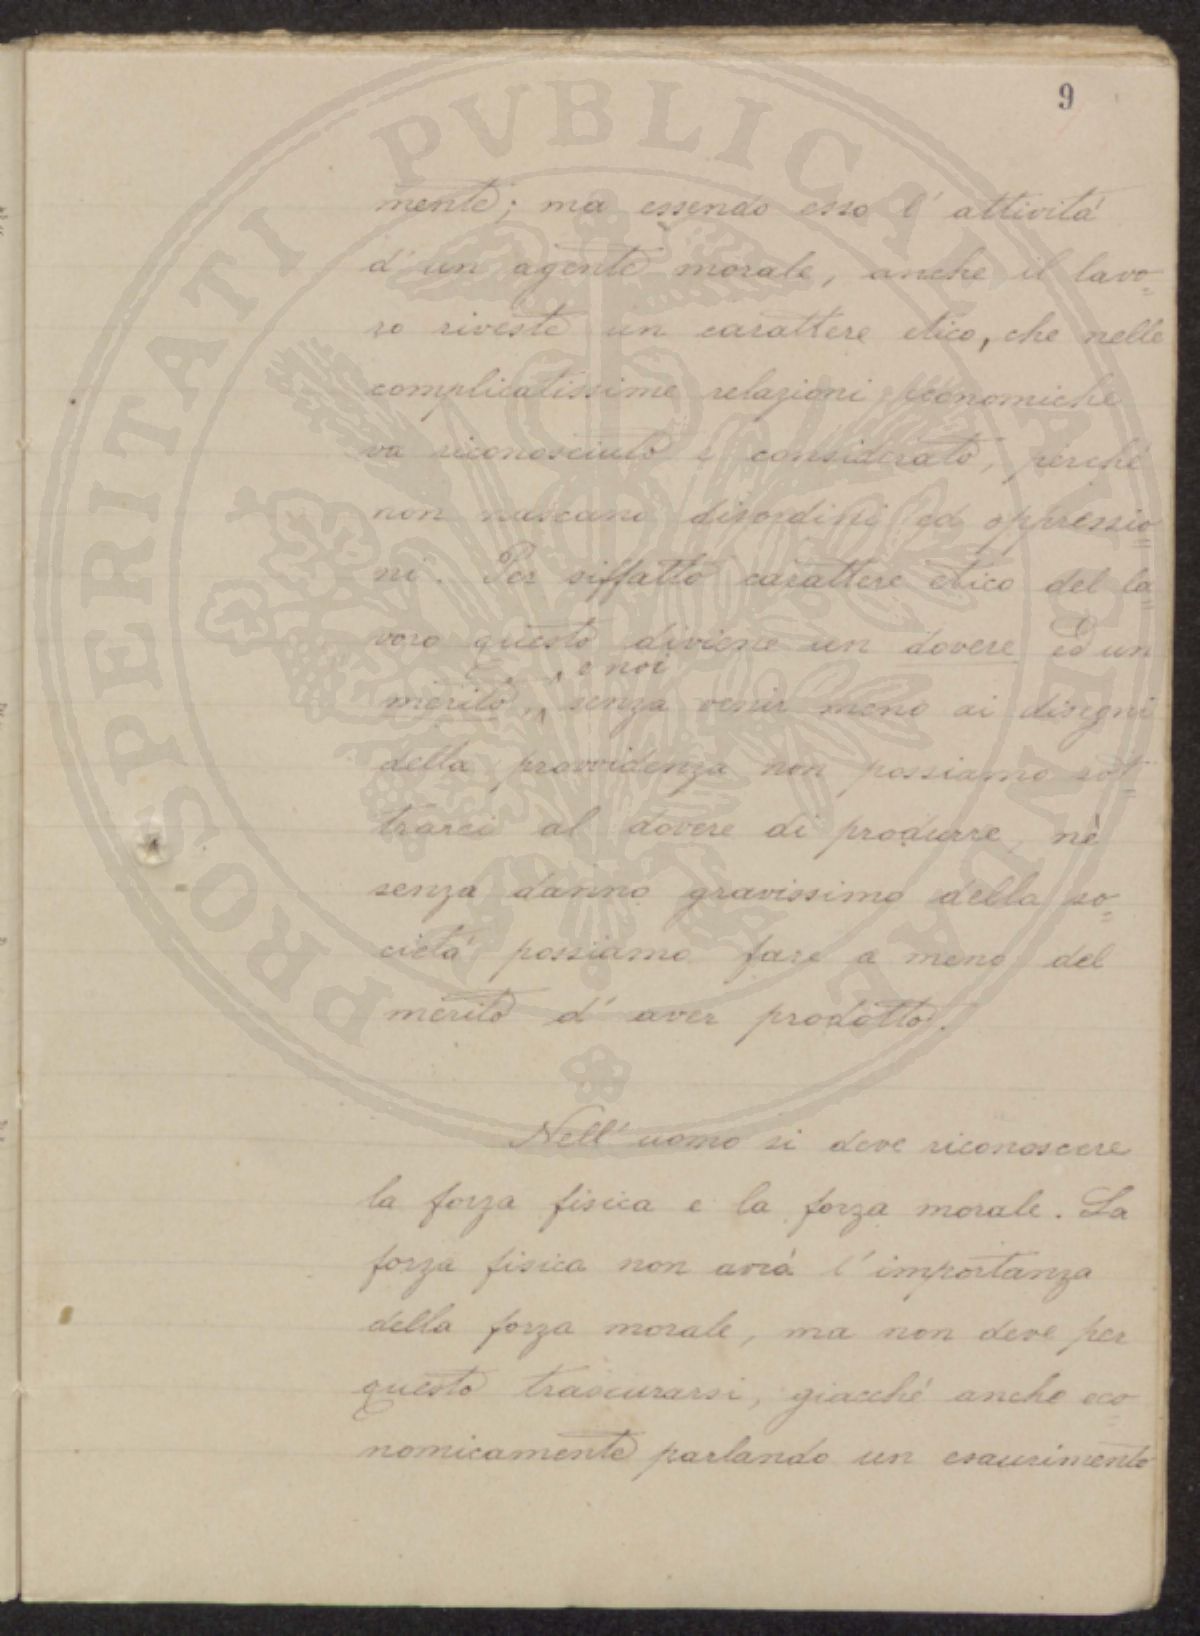 9
mente; ma essendo esso l'attività
d'un agente morale, anche il lavo=
ro riveste un carattere etico, che nelle
complicatissime relazioni economiche
va riconosciuto e considerato, perché
non nascano disordini ed oppressio=
ni. Per siffatto carattere etico del la=
voro questo diviene un dovere ed un
, e noi
merito, senza venir meno ai disegni
della provvidenza non possiamo sot=
trarci al dovere di produrre, nè
senza danno gravissimo della so=
cietà possiamo fare a meno del
merito d'aver prodotto.
Nell'uomo si deve riconoscere
la forza fisica e la forza morale. La
forza fisica non avrà l'importanza
della forza morale, ma non deve per
questo trascurarsi, giacché anche eco=
nomicamente parlando un esaurimento
PROSPERITATI PVBLICAE